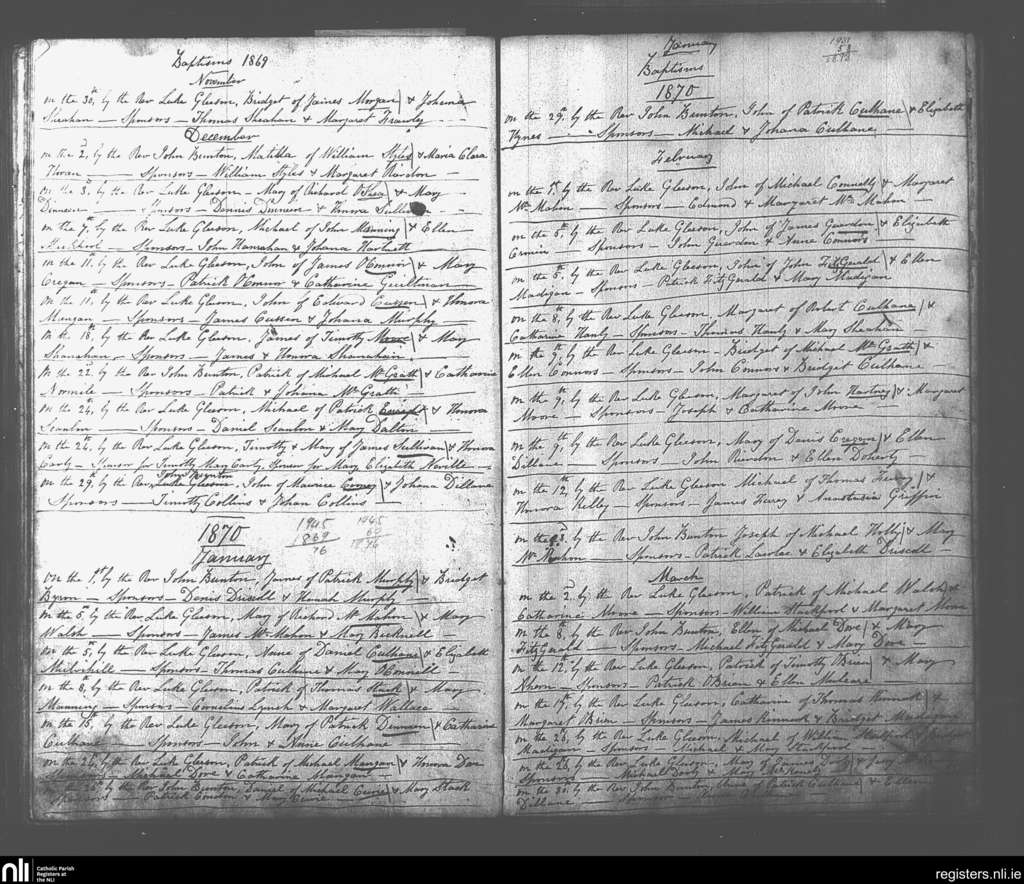 Baptisms 1869
November
On the 30th, by the Rev Luke Gleeson, Bridget of James Morgan & Johena
Shehan — Sponsors — Thomas Sheahan & Margaret Frawley
December
On the 2, by the Rev John Bunton, Matilda of William Styles & Maria Clara
— Sponsors — William Styles & Margaret Riordon
On the 3d, by the Rev Luke Gleeson — Mary of Richard O'Shea & Mary
Dinneen — Sponsors — Dennis Dinneen & Honora Sullivan
On the 7, by the Rev Luke Gleeson, Michael of John Manning & Ellen
— Sponsors — John Hanrahan & Johana Harnett
On the 11th by the Rev Luke Gleeson, John of James O'Connor & Mary
Creegan — Sponsors — Patrick O'Connor & Catharine
On the 11th, by the Rev Luke Gleeson, John of Edward Cussen & Honora
Mangan — Sponsors — James Cussen & Johana Murphy
On the 18, by the Rev Luke Gleeson, James of Timothy & Mary
Shanahan — Sponsors — James & Honora Shanahan
On the 22, by the Rev John Bunton, Patrick of Michael McGrath & Catharine
Normile — Sponsors — Patrick & Johana McGrath
On the 24, by the Rev Luke Gleeson, Michael of Patrick & Honora
Scanlon — Sponsors — Daniel Scanlon & Mary Dalton
On the 26, by the Rev Luke Gleeson, Timothy & Mary of James Sullivan & Honora
Early — Sponsor for Timothy Mary Early, Sponsor for Mary Elizabeth Neville
John Bunton
On the 29, by the Rev Luke Gleeson, John of Maurice & Johana Dillane
Sponsors — Timothy Collins & Johan Collins
1870
1945
1869
76
1945
69
1876
January
On the 1st, by the Rev John Bunton, James of Patrick Murphy & Bridget
Byron — Sponsors — Denis Driscoll & Hanah Murphy
On the 5, by the Rev Luke Gleeson, Mary of Richard McMahon & Mary
Walsh — Sponsors — James McMahon & Mary Bicknell
On the 5, by the Rev Luke Gleeson, Anne of Daniel Culhane & Elizabeth
— Sponsors Thomas Culhane & Mary O'Connell
On the 8, by the Rev Luke Gleeson, Patrick of Thomas Stack & Mary
Manning — Sponsors — Cornelius Lynch & Margaret Wallace
On the 15, by the Rev Luke Gleeson, Mary of Patrick Dinneen & Catharine
Culhane — Sponsors — John & Anne Culhane
On the 26, by the Rev Luke Gleeson, Patrick of Michael Mangan & Honora Dore
Sponsors — Michael Dore & Catharine Mangan
On the by the Rev John Bunton, Daniel of Michael & Mary Stack
Sponsors — Patrick & Mary
January
Baptisms
1870
On the 29, by the Rev John Bunton, John of Patrick Culhane & Elizabeth
Hynes — Sponsors — Michael & Johana Culhane
February
On the 1st, by the Rev Luke Gleeson, John of Michael Connelly & Margaret
McMahon — Sponsors — Edmond & Margaret McMahon
On the 5, by the Rev Luke Gleeson, John of James & Elizabeth
Cronin — Sponsors — John & Anne Connors
On the 5, by the Rev Luke Gleeson, John of John FitzGerald & Ellen
Madigan — Sponsors — Patrick FitzGerald & Mary Madigan
On the 8, by the Rev Luke Gleeson, Margaret of Robert Culhane &
Catharine Hanly — Sponsors — Thomas Hanly & Mary Sheahan
On the 9, by the Rev Luke Gleeson — Bridget of Michael McGrath &
Ellen Connors — Sponsors — John Connors & Bridget Culhane
On the 9, by the Rev Luke Gleeson, Margaret of John & Margaret
Moore — Sponsors — Joseph & Catharine Moore
On the 9, by the Rev Luke Gleeson, Mary of Denis Creegan & Ellen
Dillane — Sponsors — John Riordan & Ellen Doherty
On the 12th, by the Rev Luke Gleeson Michael of Thomas &
Honora Kelley — Sponsors — James & Anastasia Griffin
On the by the Rev John Bunton Joseph of Michael Holly & Mary
McMahon — Sponsors — Patrick Lawlee & Elizabeth Driscoll
March
On the 2, by the Rev Luke Gleeson, Patrick of Michael Walsh &
Catharine Moore — Sponsors — William Stackpool & Margaret Moore
On the 8, by the Rev John Bunton, Ellen of Michael Dore & Mary
FitzGerald — Sponsors Michael FitzGerald & Mary Dore
On the 12, by the Rev Luke Gleeson, Patrick of Timothy O'Brien & Mary
— Sponsors — Patrick O'Brien & Ellen Mulcare
On the 19, by the Rev Luke Gleeson, Catharine of Thomas Kinnick &
Margaret Brien — Sponsors — James Kinnick & Bridget Madigan
On the 23, by the Rev Luke Gleeson, Michael of William Stackpool &
Madigan — Sponsors — Michael & Mary Stackpool
On the 26, by the Rev Luke Gleeson, Mary of James Doody &
Sponsors — Michael Doody & Mary
On the 30, by the Rev John Bunton, Anne of Patrick Culhane & Ellen
Dillane — Sponsors
nli
Catholic Parish
Registers at
the NLI
registers.nli.ie